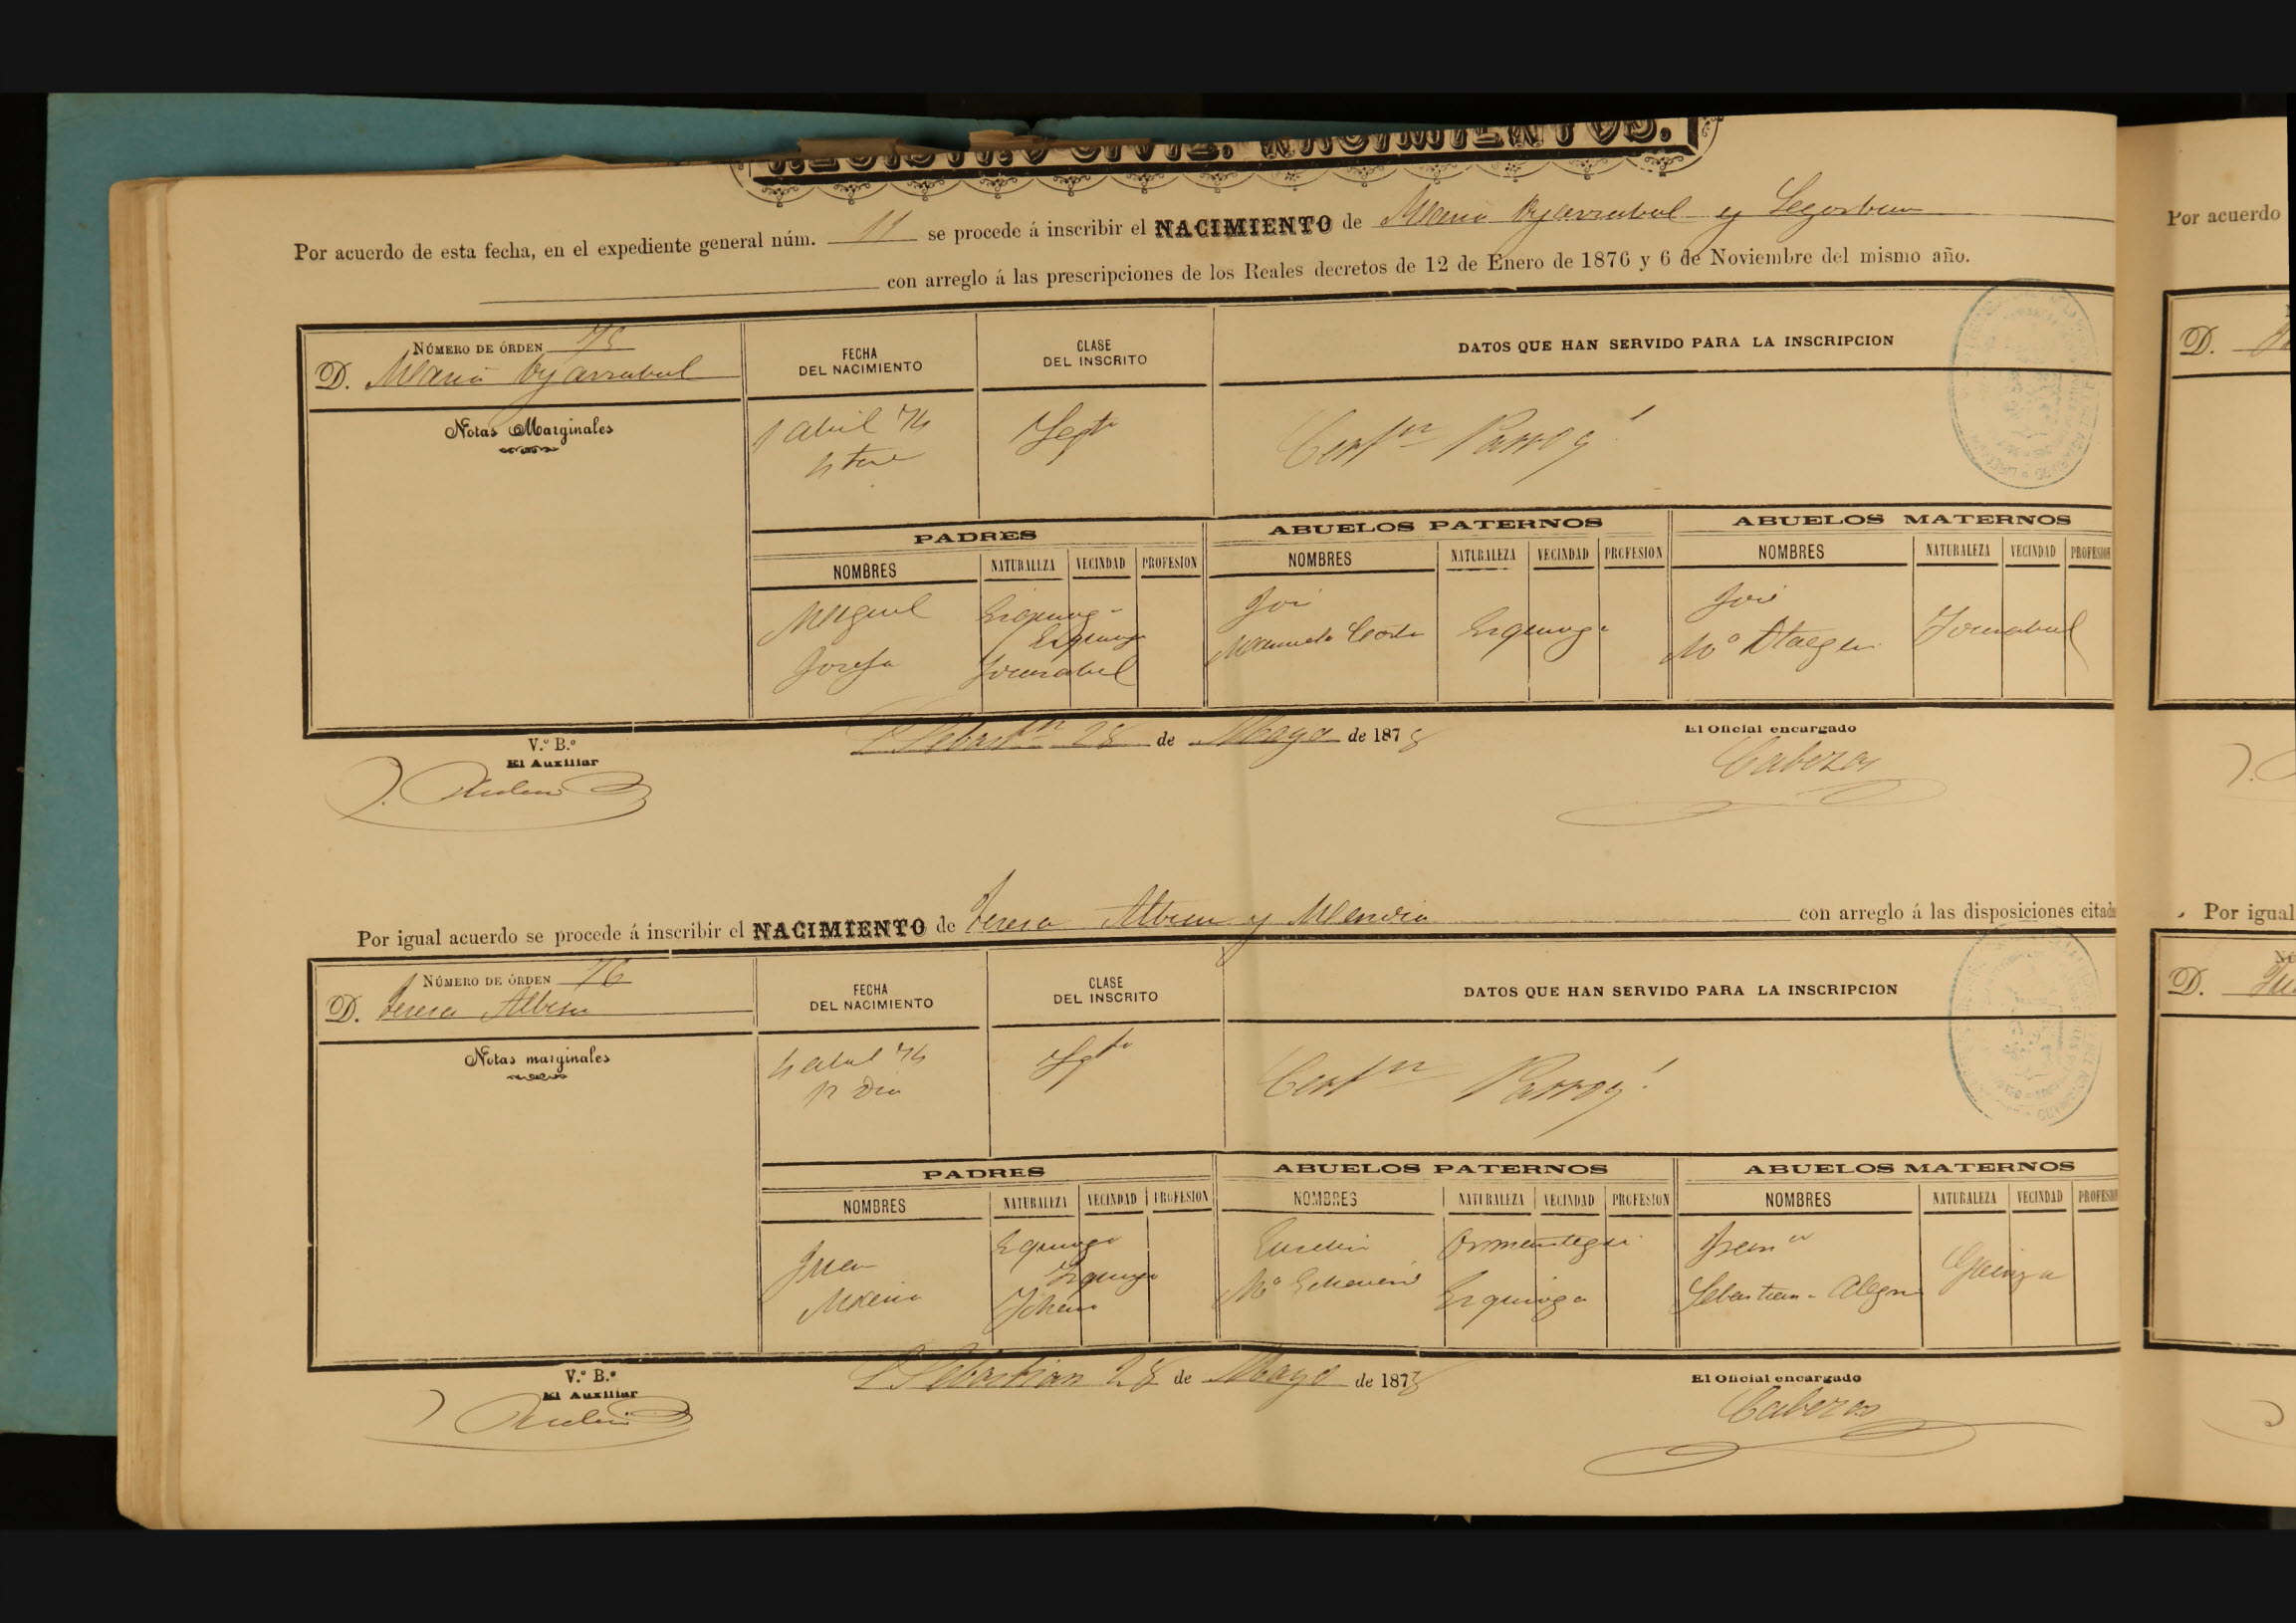 REGISTRO CIVIL. NACIMIENTOS.
Por acuerdo de esta fecha, en el expediente general núm. 11 se procede á inscribir el NACIMIENTO de Maria Oyarzabal y
con arreglo á las prescripciones de los Reales decretos de 12 de Enero de 1876 y 6 de Noviembre del mismo año.
NÚMERO DE ÓRDEN 75
D. Maria Oyarzabal
FECHA DEL NACIMIENTO
CLASE DEL INSCRITO
DATOS QUE HAN SERVIDO PARA LA INSCRIPCION
Notas Marginales
1 Abril 74
Certfn Parroql
PADRES
ABUELOS PATERNOS
ABUELOS MATERNOS
NOMBRES NATURALEZA VECINDAD PROFESION
NOMBRES NATURALEZA VECINDAD PROFESION
NOMBRES NATURALEZA VECINDAD PROFESION
Miguel Ezquioga
Ezquioga
Josefa
José
Manuela Ezquioga
José
Mª
S Sebastn 28 de Mayo de 1878
V.º B.º
El Auxiliar
El Oficial encargado
Cabezas
Por igual acuerdo se procede á inscribir el NACIMIENTO de Teresa Albisu y Mendia con arreglo á las disposiciones citad
NÚMERO DE ÓRDEN 76
D. Teresa Albisu
FECHA DEL NACIMIENTO
CLASE DEL INSCRITO
DATOS QUE HAN SERVIDO PARA LA INSCRIPCION
Notas marginales
4 Abril 74
12 Dia
Certfn Parroql
PADRES
ABUELOS PATERNOS
ABUELOS MATERNOS
NOMBRES NATURALEZA VECINDAD PROFESION
NOMBRES NATURALEZA VECINDAD PROFESION
NOMBRES NATURALEZA VECINDAD PROFESION
Juan Ezquioga
Ezquioga
Maria Ichaso
Eusebio Ormaiztegui
Mª Echeverria Ezquioga
Franco
Sebastiana Gainza
S Sebastian 28 de Mayo de 1878
V.º B.º
El Auxiliar
El Oficial encargado
Cabezas
Por acuerdo
D.
Por igual
D.